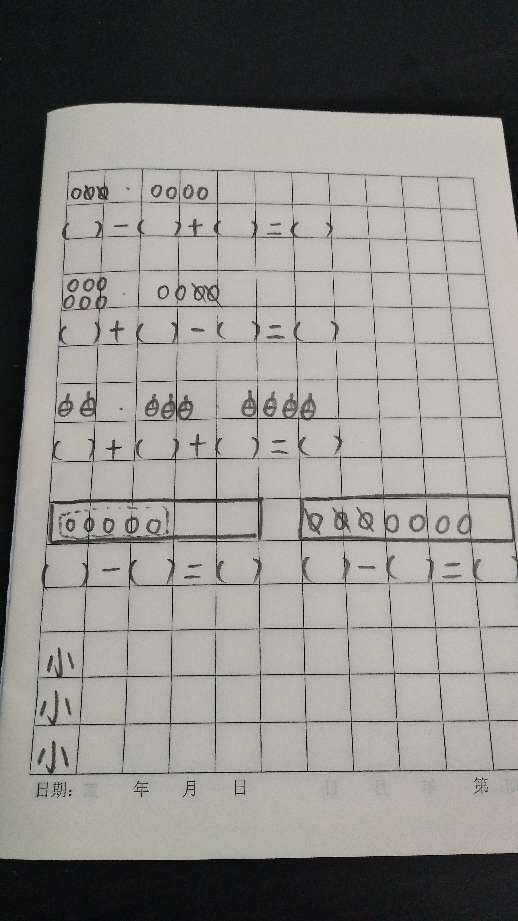 ( ) - ( ) + ( ) = ( )
( ) + ( ) - ( ) = ( )
( ) + ( ) + ( ) = ( )
( ) - ( ) = ( ) ( ) - ( ) = ( )
小
小
小
日期: 年 月 日 第